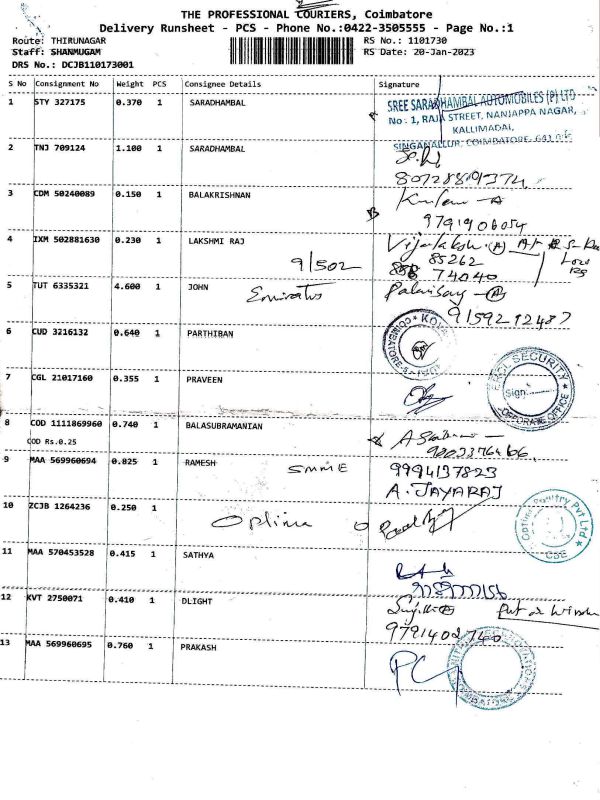 THE PROFESSIONAL COURIERS, Coimbatore
Delivery Runsheet - PCS - Phone No.:0422-3505555 - Page No.:1
Route: THIRUNAGAR
RS No.: 1101730
Staff: SHANMUGAM
RS Date: 20-Jan-2023
DRS No.: DCJB110173001
S No Consignment No Weight PCS Consignee Details Signature
1 STY 327175 0.370 1 SARADHAMBAL
SREE SARADHAMBAL AUTOMOBILES (P) LTD
No : 1, RAJA STREET, NANJAPPA NAGAR,
KALLIMADAI,
SINGANALLUR, COIMBATORE-641
2 TNJ 709124 1.100 1 SARADHAMBAL
3 CDM 50240089 0.150 1 BALAKRISHNAN
9791906054
4 IXM 502881630 0.230 1 LAKSHMI RAJ
9/502
85262
74040
5 TUT 6335321 4.600 1 JOHN
Emirates
9159212487
6 CUD 3216132 0.640 1 PARTHIBAN
7 CGL 21017160 0.355 1 PRAVEEN
SECURITY
Sign
OFFICE
8 COD 1111869960 0.740 1 BALASUBRAMANIAN
COD Rs.0.25
9 MAA 569960694 0.825 1 RAMESH
9994137823
A. JAYARAJ
10 ZCJB 1264236 0.250 1
Optima
Optima Poultry Pvt Ltd
CBE
11 MAA 570453528 0.415 1 SATHYA
12 KVT 2750071 0.410 1 DLIGHT
9791402740
13 MAA 569960695 0.760 1 PRAKASH